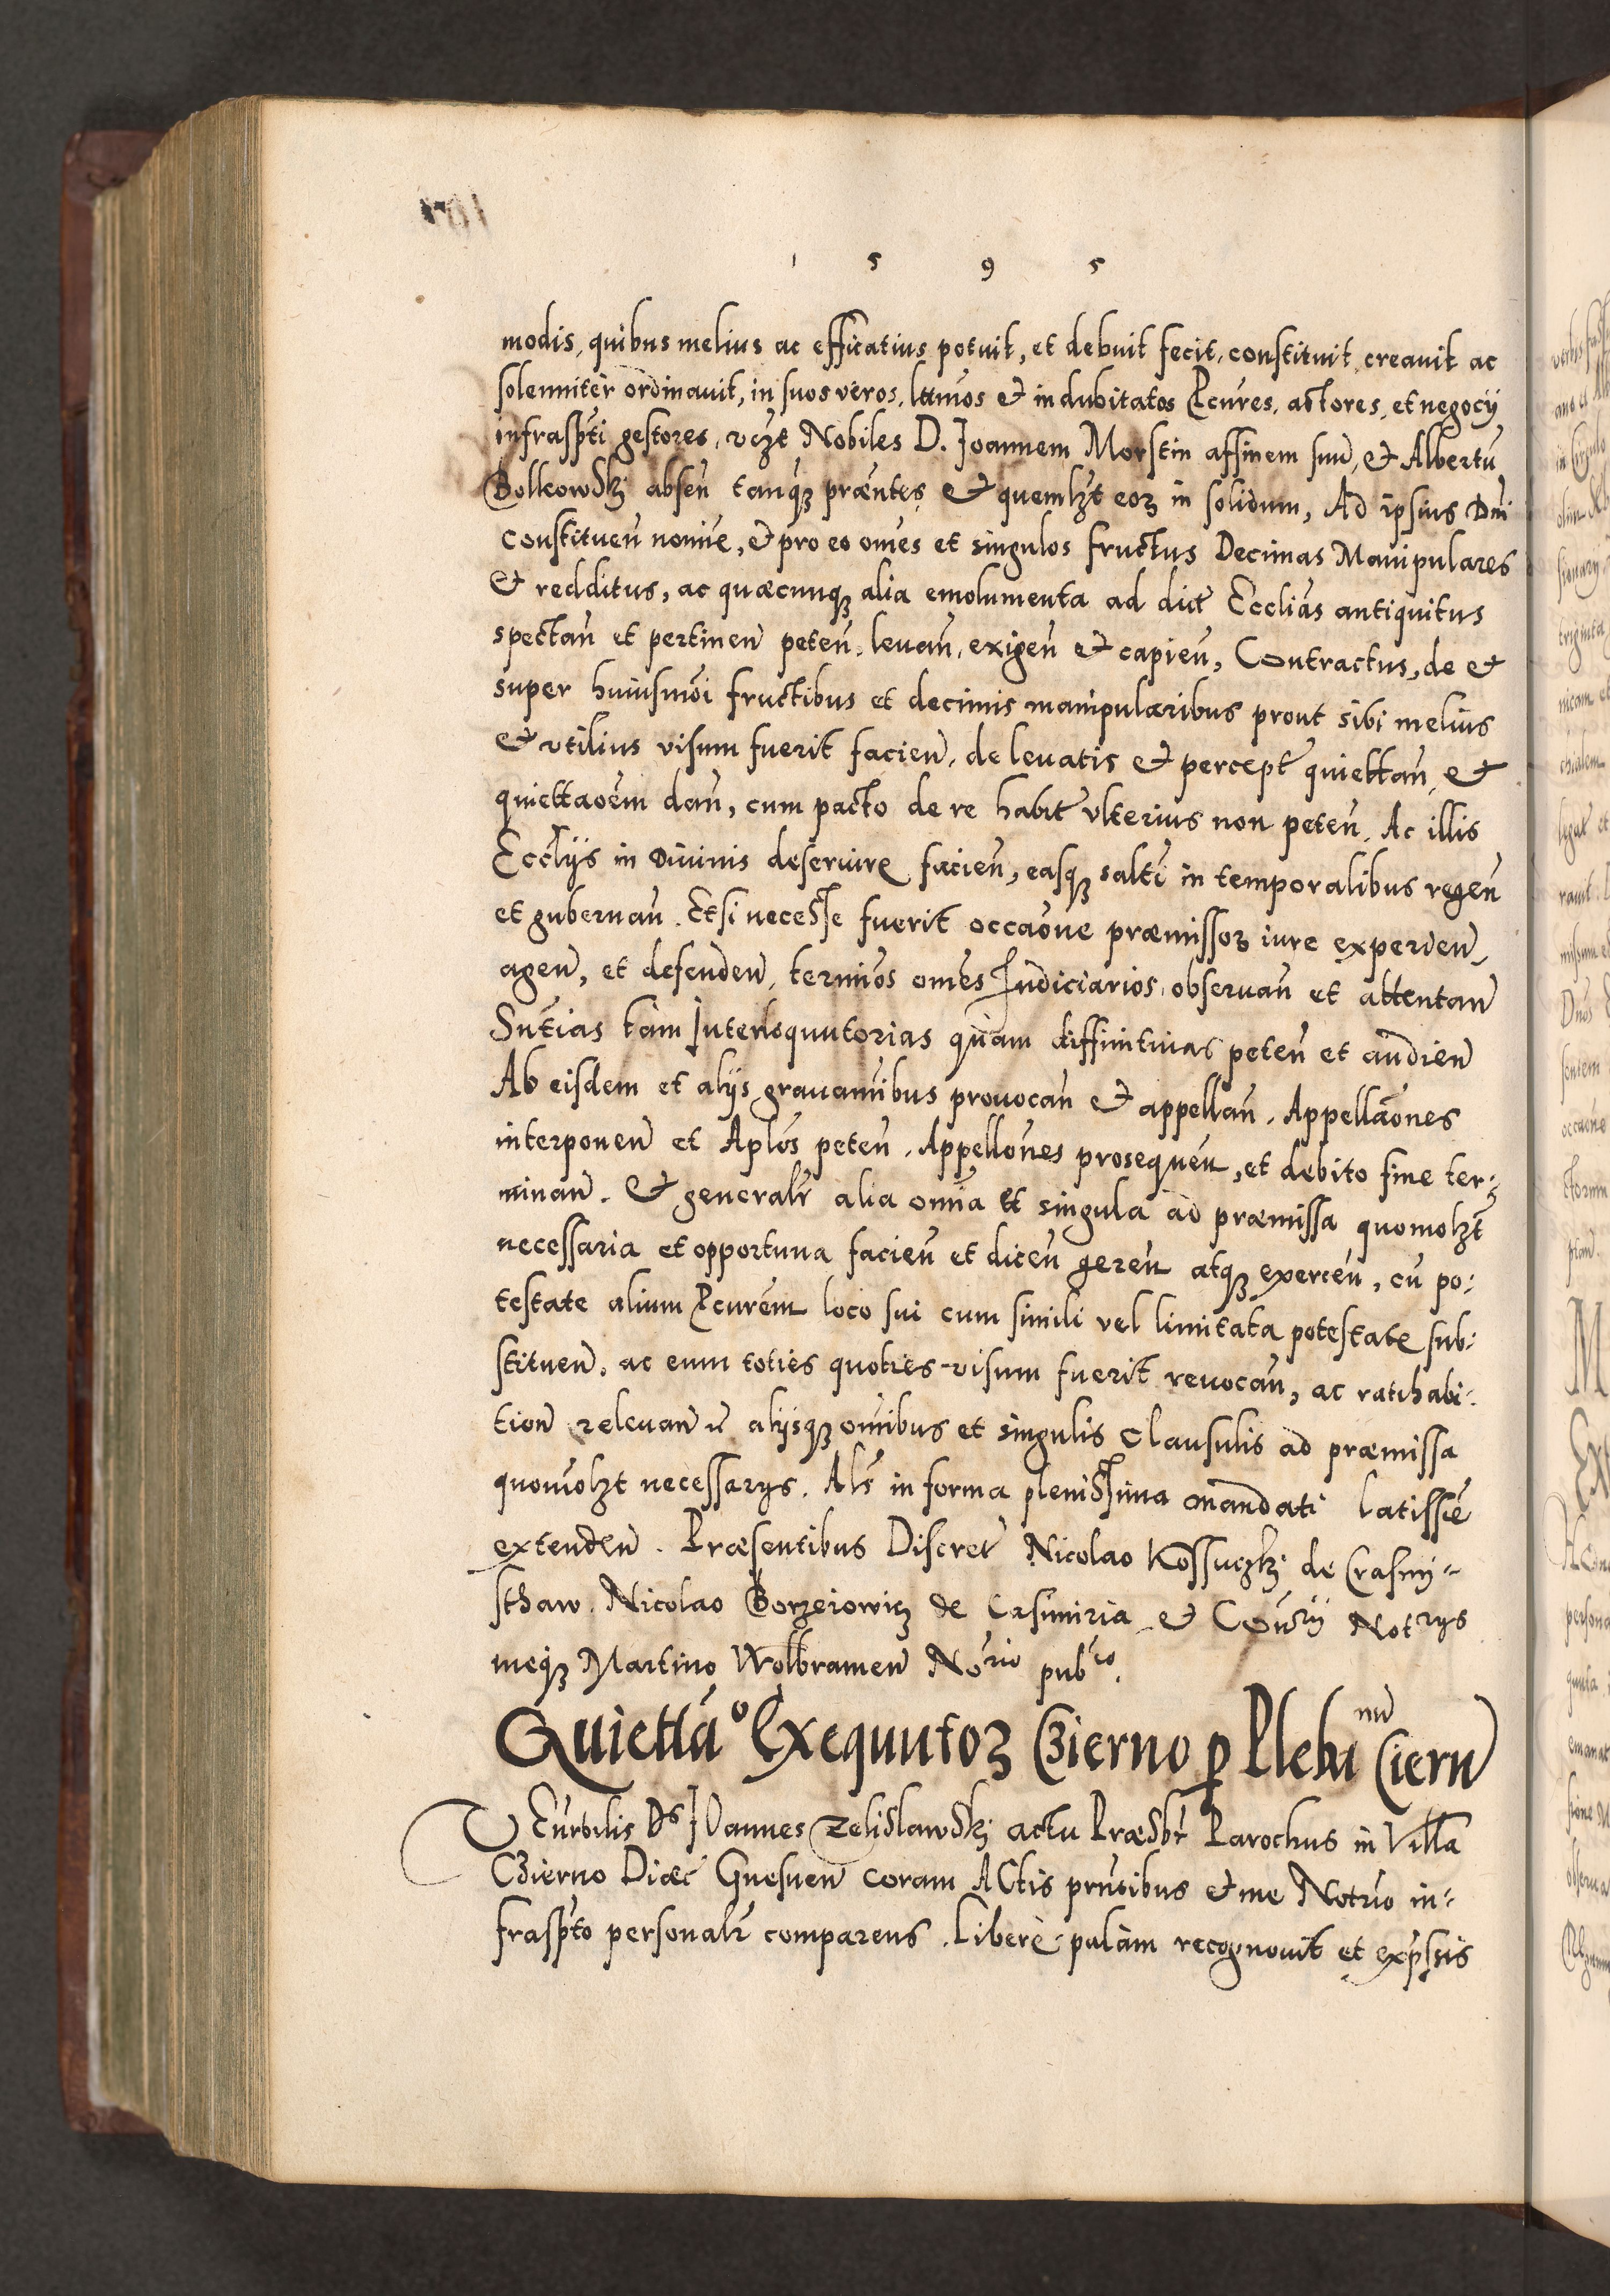 1 5 9 5
modis, quibus melius ac efficatius potuit, et debuit fecit, constituit creauit ac
solenniter ordinauit, in suos veros, lttmos et indubitatos Pcures, actores, et negocij
infraspti gestores, vczt Nobiles D. Joannem Morstin affinem suu, et Albertu
Bolkowskj absen tanqz præntes et quemlzt eoz in solidum, Ad ipsius Dni
constituen nomie, et pro eo omes et singulos fructus Decimas Manipulares
et redditus, ac quæcunqz alia emolumenta ad dict Ecclias antiquitus
spectan et pertinen peten, leuan, exigen et capien, Contractus, de et
super huiusmoi fructibus et decimis manipularibus prout sibi melius
et vtilius visum fuerit facien, de leuatis et percept quiettan, et
quiettaoem dan, cum pacto de re habit vlterius non peten, Ac illis
Ecclijs in Diuinis deseruire facien, easqz salti in temporalibus regen
et gubernan. Et si necesse fuerit occaone præmissoz iure experien,
agen, et defenden, termios omes Judiciarios, obseruan et attentan
Sntias tam Interloquutorias quam diffinitiuas peten et audien
Ab eisdem et alijs grauamibus prouocan et appellan, Appellaones
interponen et Aplos peten, Appellones prosequen, et debito fine ter:
minan. et generalr alia omia et singula ad præmissa quomolzt
necessaria et opportuna facien et dicen geren atqz exercen, cu po:
testate alium Pcurem loco sui cum simili vel limitata potestate sub:
stituen, ac eum toties quoties visum fuerit reuocan, ac ratihabi:
tion releuan alijsqz omibus et singulis Clausulis ad præmissa
quomolzt necessarys. Als in forma plenissima mandati latissie
extenden. Præsentibus Discret Nicolao Kossuczkj de Crasny=
sthaw, Nicolao Borzeiowicz de Casimiria et Consrij Notrys
meqz Martino Wolbramen Norio pubco.
Quietta° Exequutoz Czierno p Plebanu Ciern
VEnrbilis Ds JOannes Zelislawskj actu Præsbr Parochus in Villa
Czierno Diæc Gnesnen coram ACtis prntibus et me Notrio in=
frasp̃to personalr comparens, libere palam recognouit et exp̃ssis